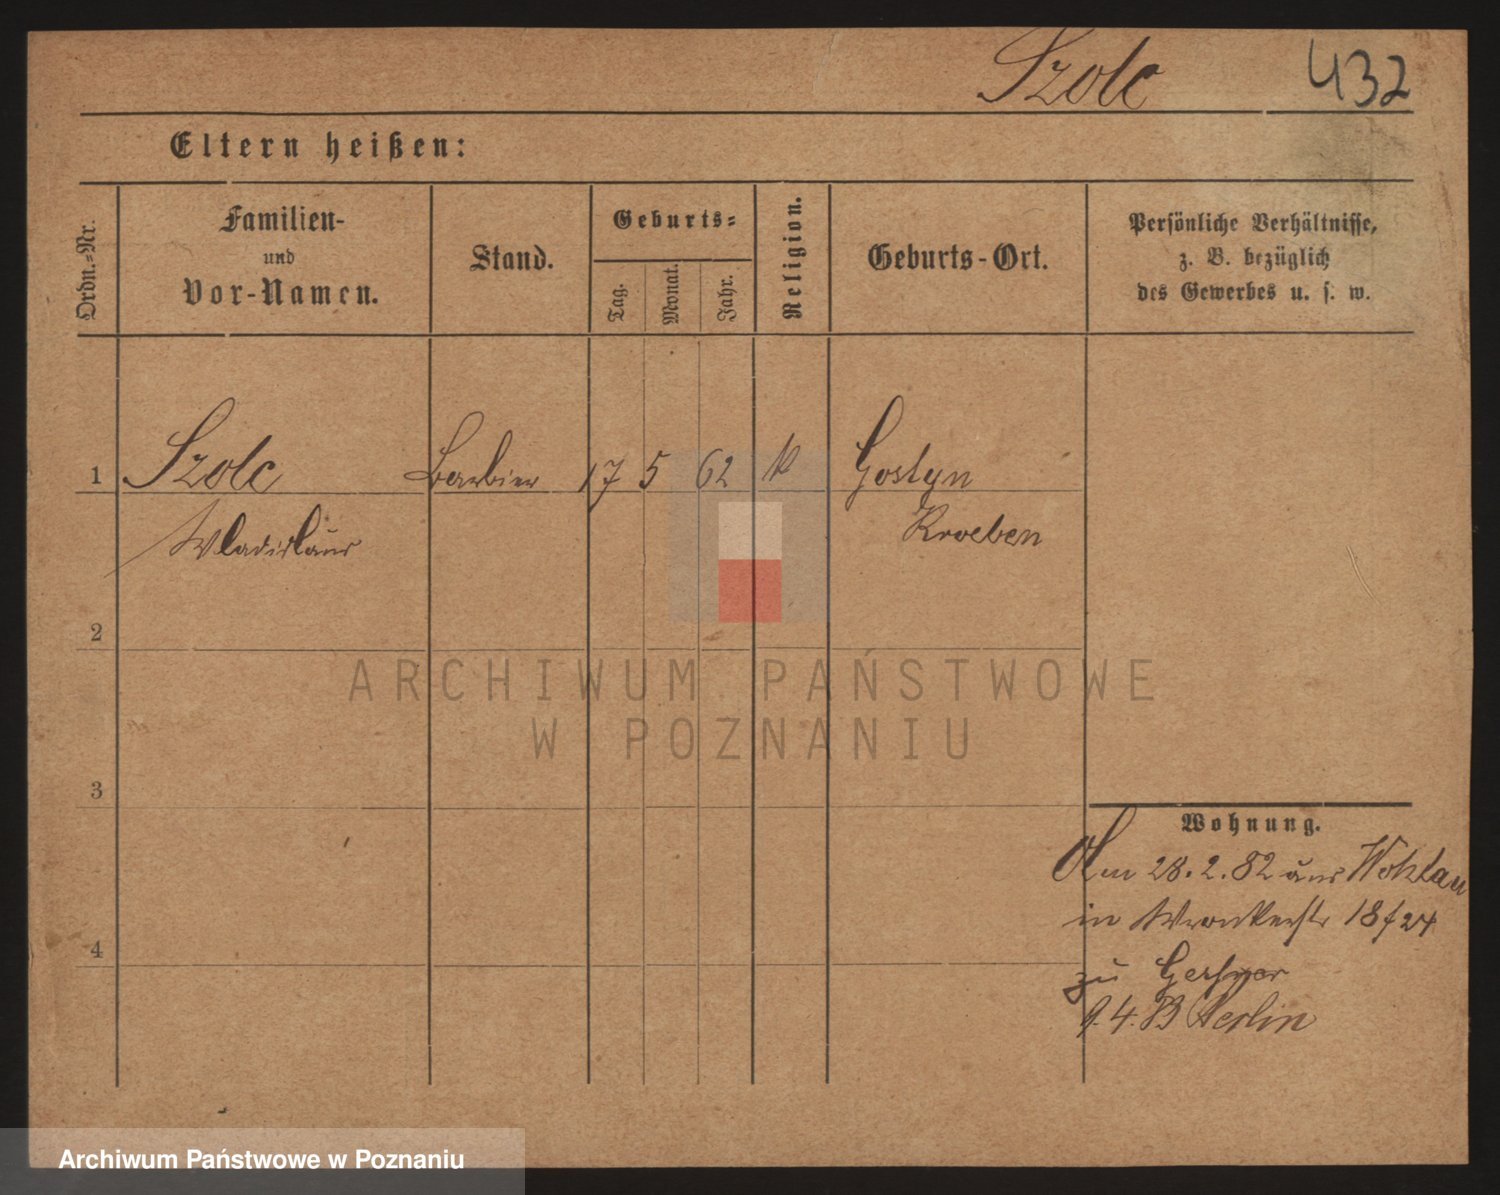 Szolc 432
Eltern heißen:
Ordn.=Nr.
Familien-
und
Vor-Namen.
Stand.
Geburts=
Tag.
Monat.
Jahr.
Religion.
Geburts-Ort.
Persönliche Verhältnisse,
z. B. bezüglich
des Gewerbes u. s. w.
1 Szolc Barbier 17 5 62 k Gostyn
Wladislaus Kroeben
2
3
4
Wohnung.
Am 28.2.82 aus Wohlau
in Wronkerstr 18/24
zu
9.4. Berlin
ARCHIWUM PAŃSTWOWE
W POZNANIU
Archiwum Państwowe w Poznaniu